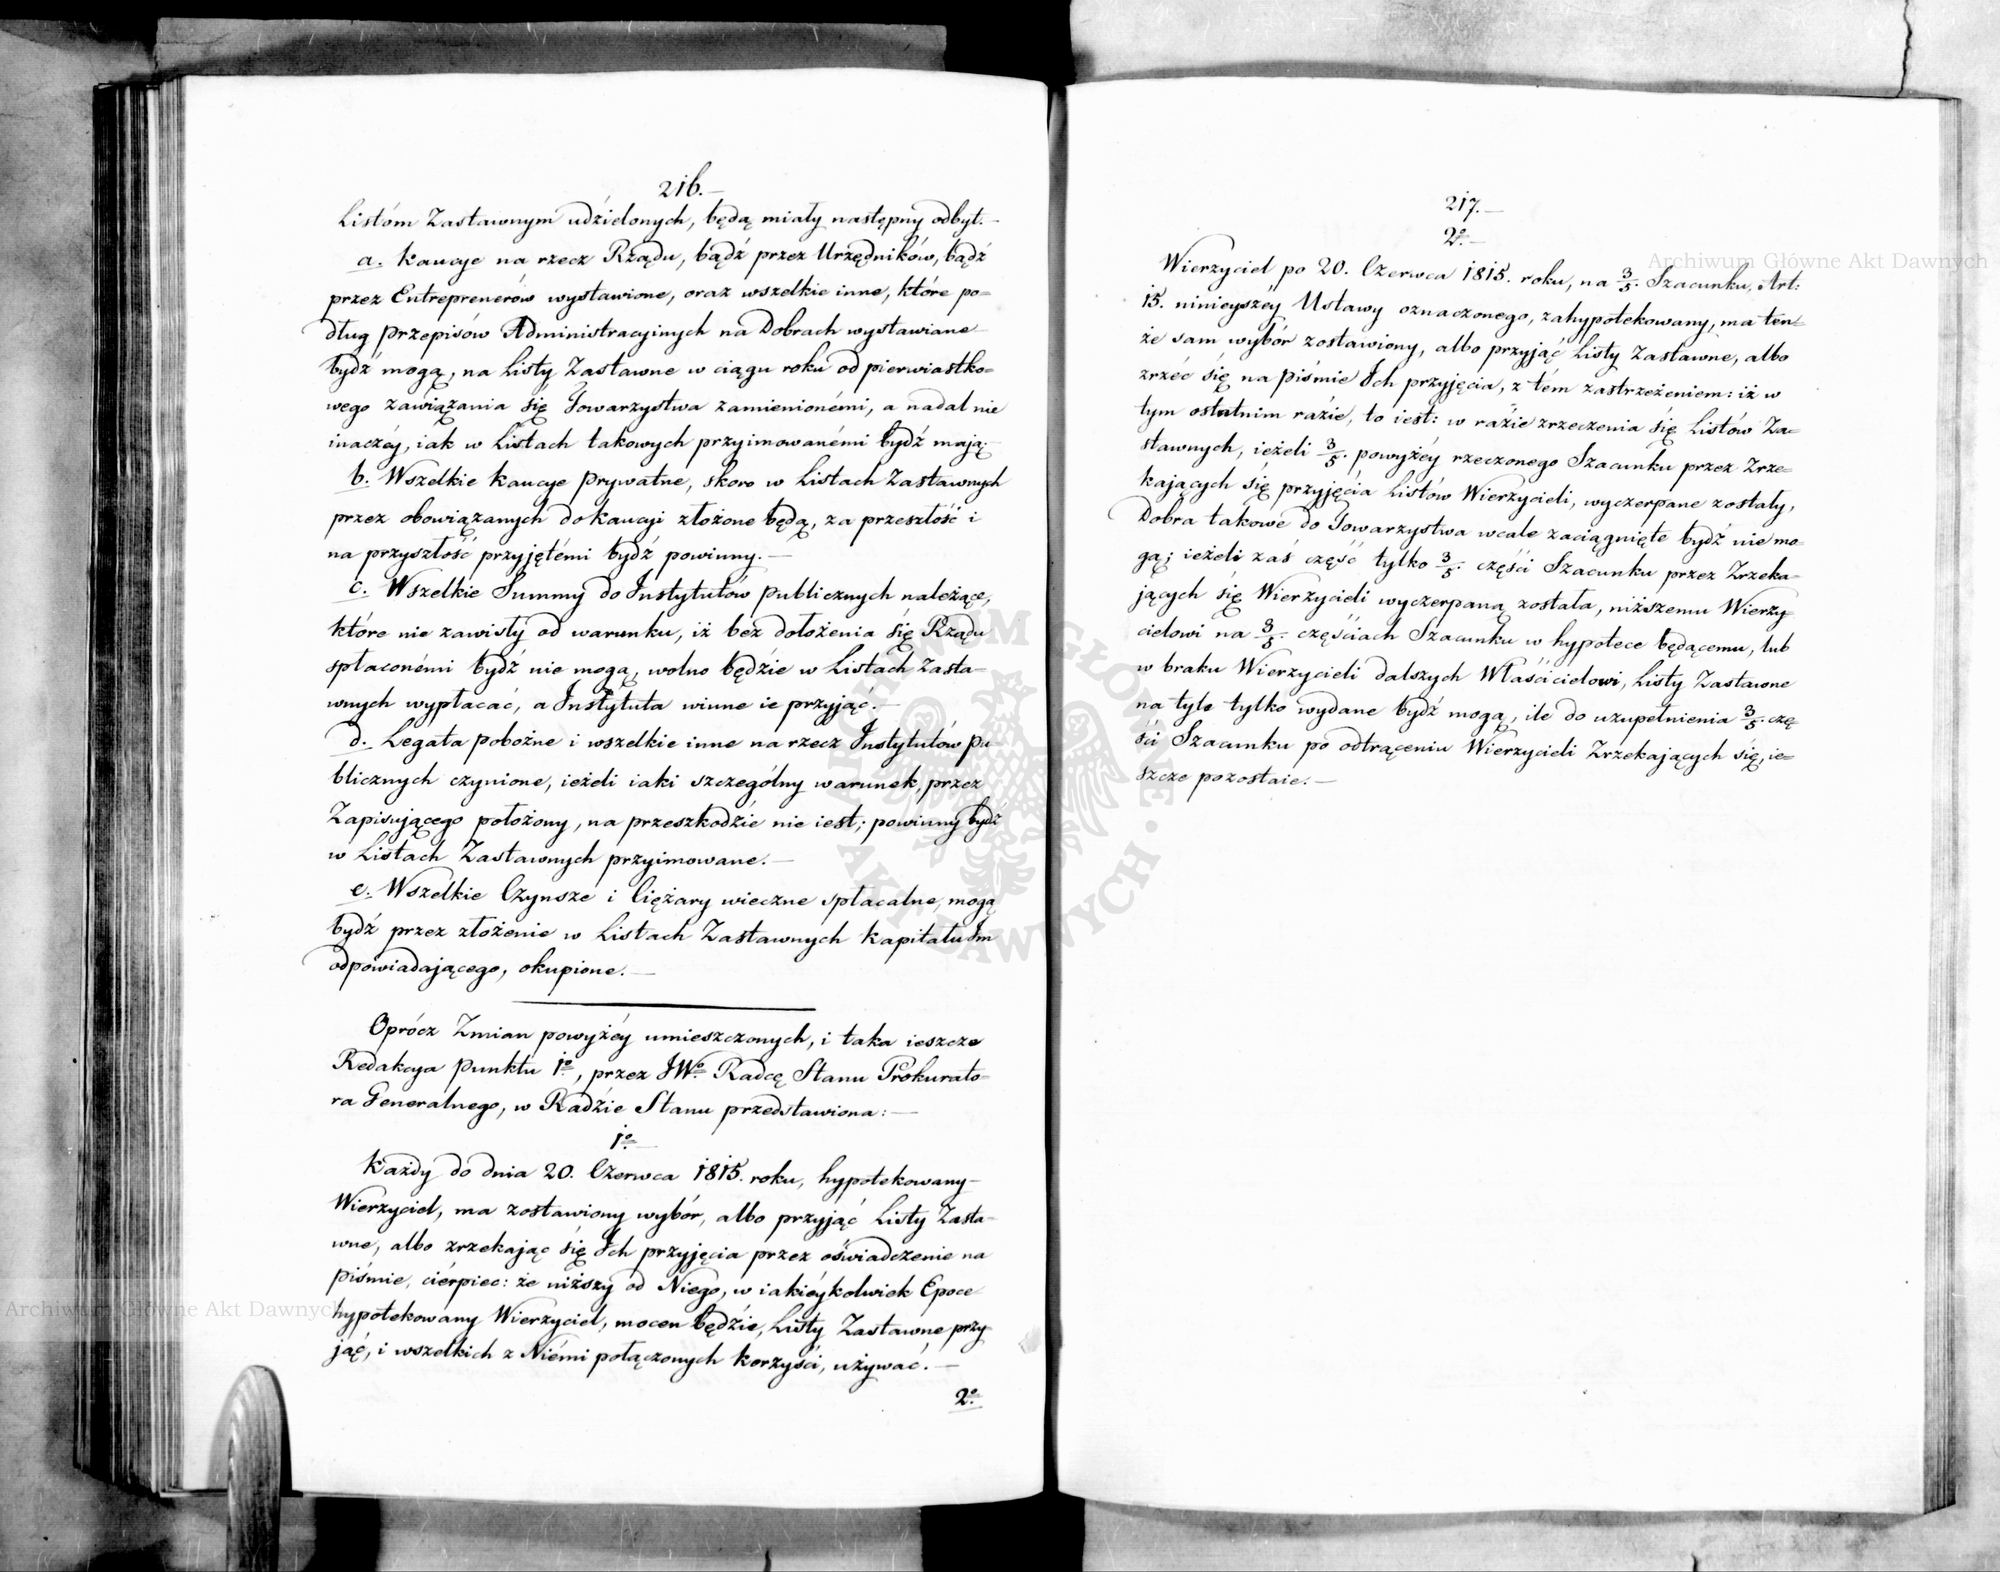 216.—
Listóm Zastawnym udzielonych, będą miały następny odbyt.—
a. Kaucye na rzecz Rządu, bądź przez Urzędników, bądź
przez Entreprenerów wystawione, oraz wszelkie inne, które po=
dług przepisów Administracyinych na Dobrach wystawiane
bydź mogą, na Listy Zastawne w ciągu roku od pierwiastko=
wego zawiązania się Towarzystwa zamienionémi, a nadal nie
inaczéy, iak w Listach takowych przyimowanémi bydź mają;—
b. Wszelkie Kaucye prywatne, skoro w Listach Zastawnych
przez obowiązanych do Kaucyi złożone będą, za przeszłość i
na przyszłość przyjętémi bydź powinny.—
c. Wszelkie Summy do Instytutów publicznych należące,
które nie zawisły od warunku, iż bez dołożenia się Rządu
spłaconémi bydź nie mogą, wolno będzie w Listach Zasta=
wnych wypłacać, a Instytuta winne ie przyjąć.—
d. Legata pobożne i wszelkie inne na rzecz Instytutów pu=
blicznych czynione, ieżeli iaki szczególny warunek, przez
Zapisującego położony, na przeszkodzie nie iest; powinny bydź
w Listach Zastawnych przyimowane.—
e. Wszelkie Czynsze i Ciężary wieczne spłacalne, mogą
bydź przez złożenie w Listach Zastawnych Kapitału Im
odpowiadającego, okupione.—
Oprócz Zmian powyżéy umieszczonych, i taka ieszcze
Redakcya punktu 1º, przez JWº Radcę Stanu Prokurato=
ra Generalnego, w Radzie Stanu przedstawiona:—
1º—
Każdy do dnia 20. Czerwca 1815. roku, hypotekowany
Wierzyciel, ma zostawiony wybór, albo przyjąć Listy Zasta=
wne, albo zrzekając się Ich przyjęcia przez oświadczenie na
piśmie, cierpieć: że niższy od Niego, w iakiéykolwiek Epoce
hypotekowany Wierzyciel, mocen będzie, Listy Zastawne przy=
jąć, i wszelkich z Niémi połączonych korzyści, używać.—
2º
217.—
2º—
Wierzyciel po 20. Czerwca 1815. roku, na 3/5. Szacunku, Art:
15. ninieyszéy Ustawy oznaczonego, zahypotekowany, ma ten=
że sam wybór zostawiony, albo przyjąć Listy Zastawne, albo
zrzéc się na piśmie Ich przyjęcia, z tém zastrzeżeniem: iż w
tym ostatnim razie, to iest: w razie zrzeczenia się Listów Za=
stawnych, ieżeli 3/5. powyżéy rzeczonego Szacunku przez Zrze=
kających się przyjęcia Listów Wierzycieli, wyczerpane zostały,
Dobra takowe do Towarzystwa wcale zaciągnięte bydź nie mo=
gą; ieżeli zaś część tylko 3/5. części Szacunku przez Zrzeka=
jących się Wierzycieli wyczerpaną została, niższemu Wierzy
cielowi na 3/5. częściach Szacunku w hypotece będącemu, lub
w braku Wierzycieli dalszych Właścicielowi, Listy Zastawne
na tyle tylko wydane bydź mogą, ile do uzupełnienia 3/5. czę
ści Szacunku po odtrąceniu Wierzycieli Zrzekających się, ie=
szcze pozostaie.—
Archiwum Główne Akt Dawnych
Archiwum Główne Akt Dawnych
ARCHIWUM GŁÓWNE AKT DAWNYCH